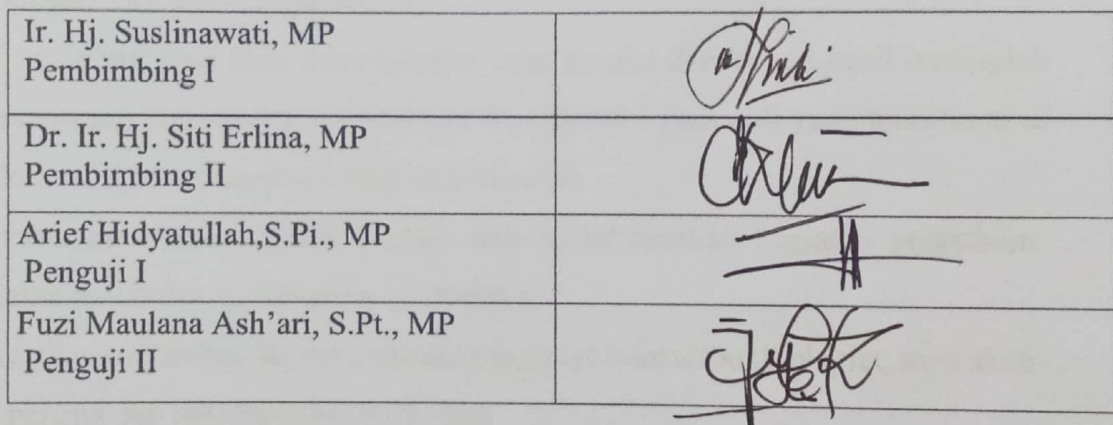 Ir. Hj. Suslinawati, MP
Pembimbing I
Dr. Ir. Hj. Siti Erlina, MP
Pembimbing II
Arief Hidyatullah,S.Pi., MP
Penguji I
Fuzi Maulana Ash'ari, S.Pt., MP
Penguji II